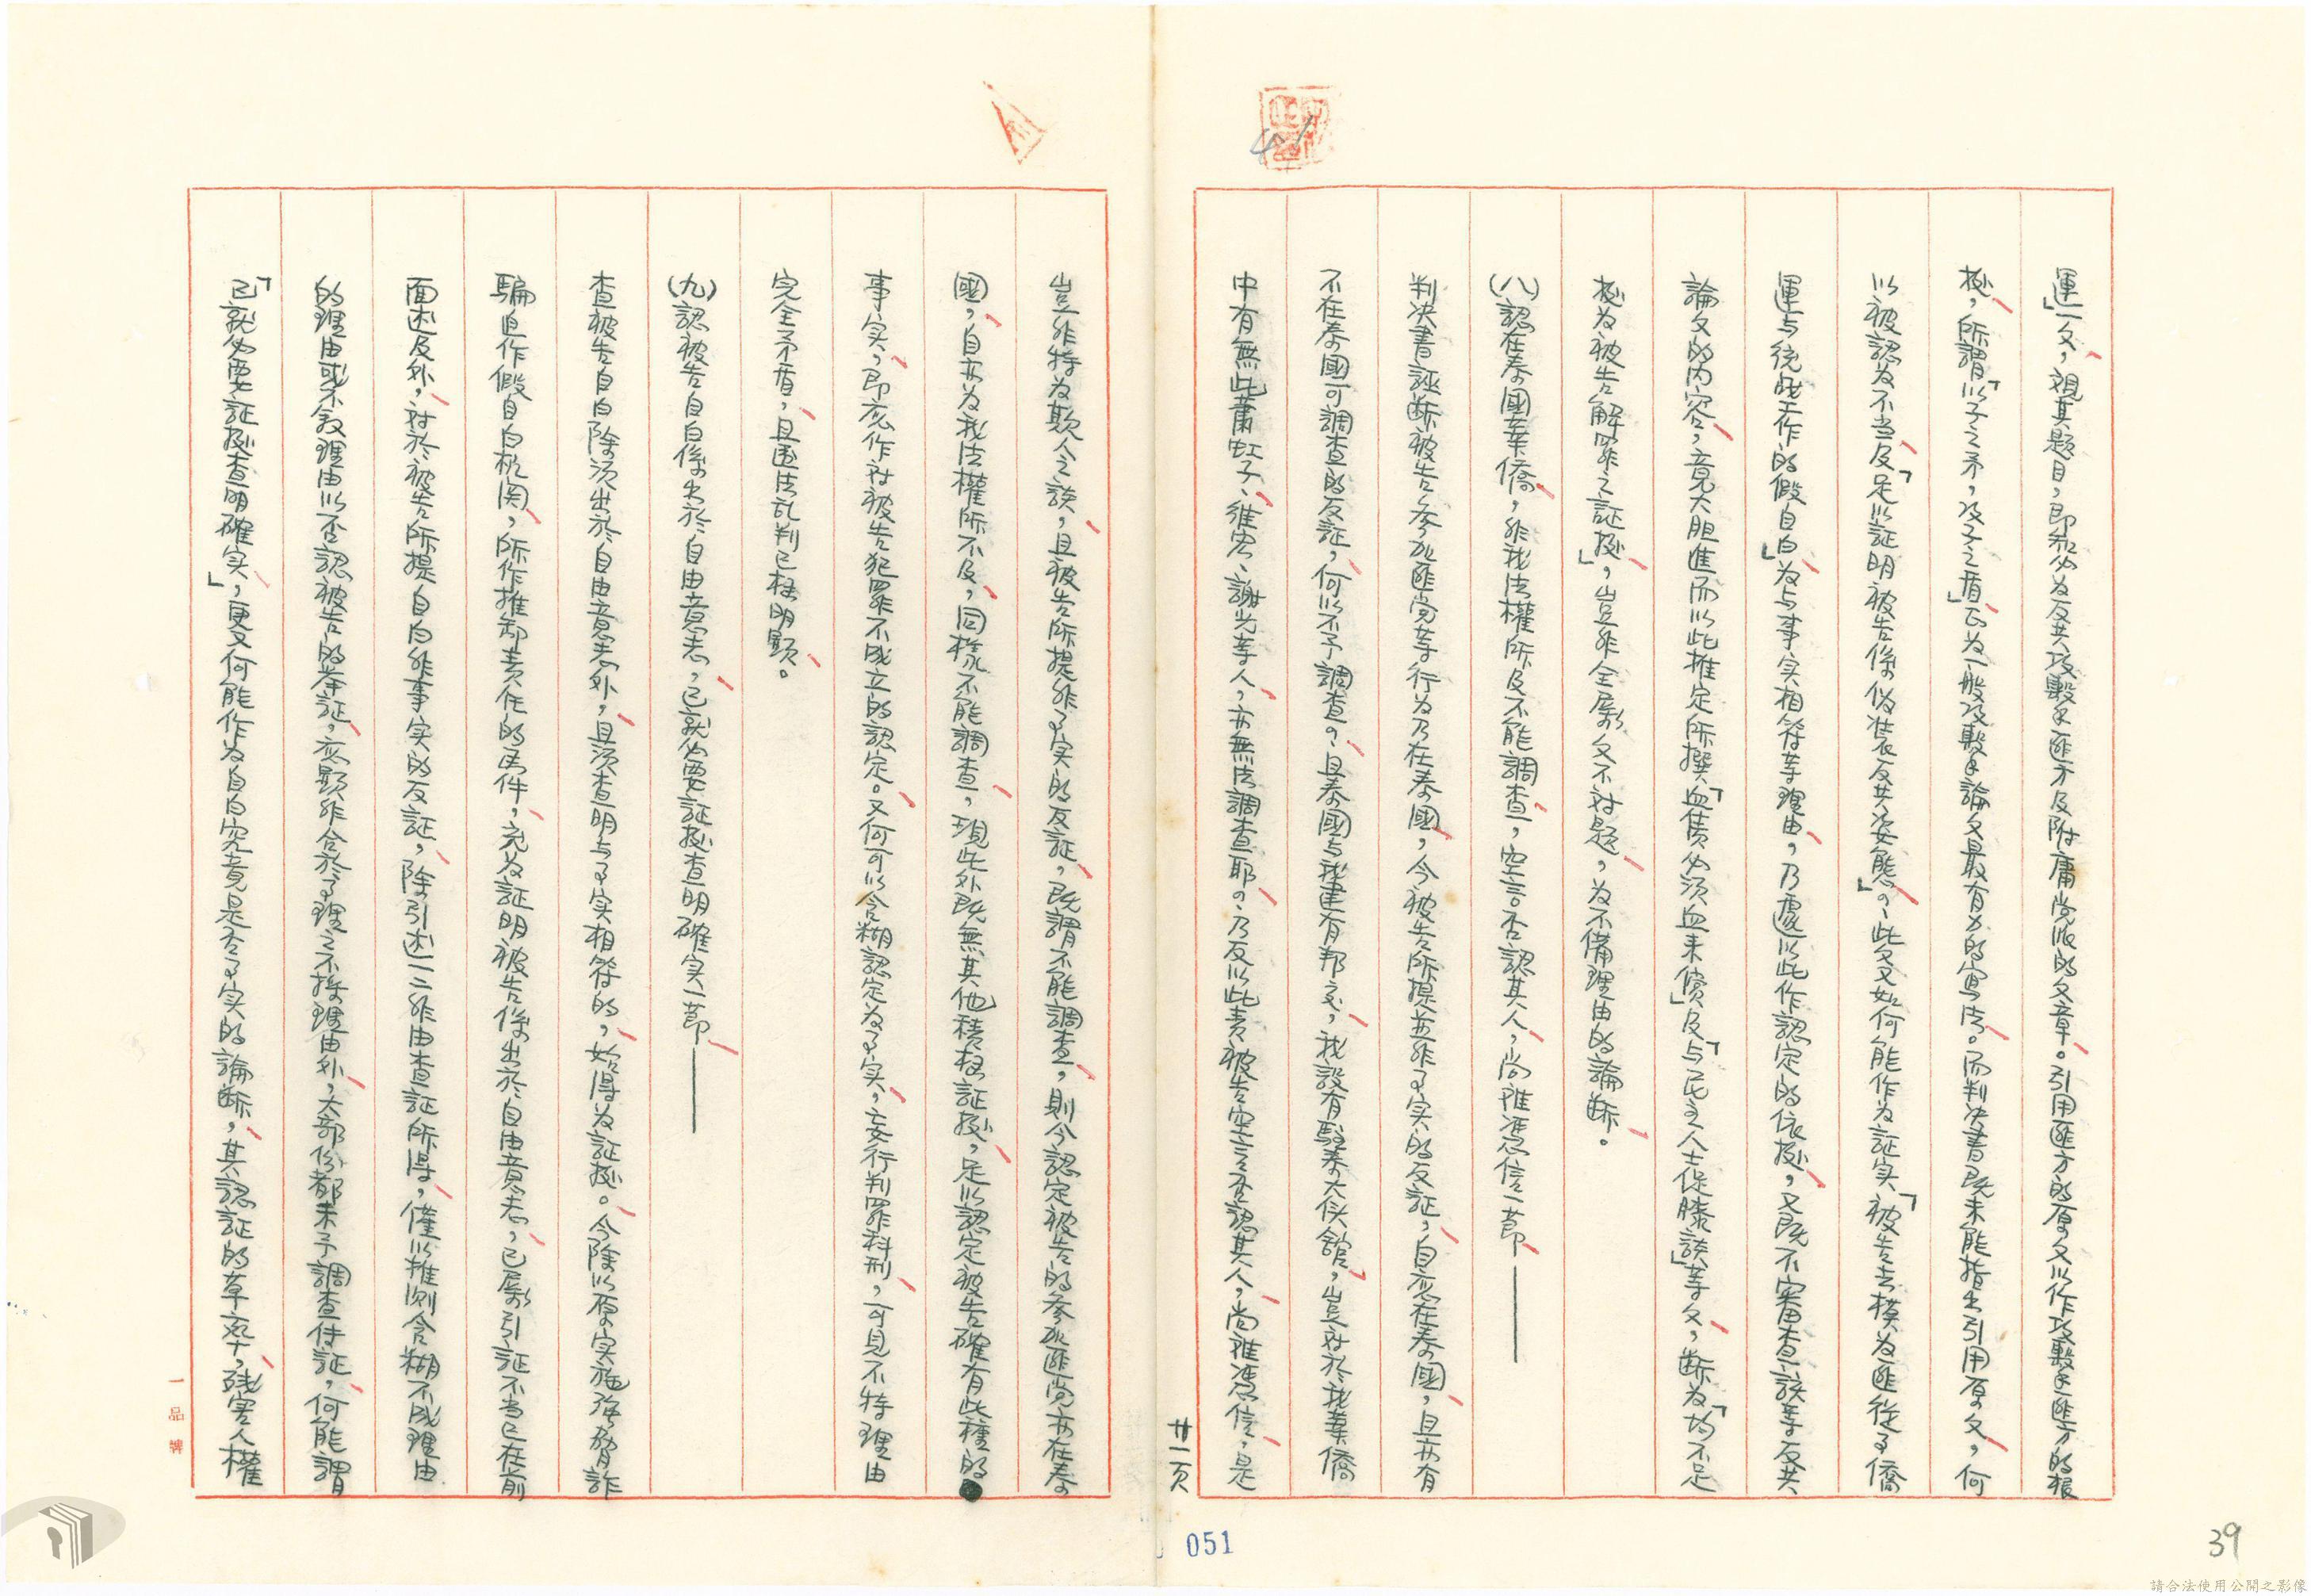 運」一文，視其題目，即知必為反共攻擊匪方及附庸党派的文章。引用匪方的原文以作攻擊匪方的根
據，所謂「以子之矛，攻子之盾」正為一般攻擊論文最有力的寫法。而判決書既未能指出引用原文，何
以被認為不当及「足以証明被告係偽裝反共姿態」の、此文又如何能作為証实「被告去模為匪從事僑
運与統战工作的假自白」為与事实相符等理由，乃遽以此作認定的依據，又既不審查該等反共
論文的內容，竟大胆進而以此推定所撰「血債必須血來償」及「与民主人士促膝談」等文，断為「均不足
據為被告解罪之証據」，豈非全屬文不对題，為不備理由的論断。
(八)認在泰國華僑，非我法權所及不能調查，空言否認其人，尚难憑信一節———
判決書証断被告参加匪党等行為乃在泰國，今被告所提並非事实的反証，自亦在泰國，且亦有
不在泰國可調查的反証，何以不予調查の、且泰國与我建有邦交，我設有駐泰大使館，豈对於我華僑
中有無此蕭虹子、維宏、謝光等人，亦無法調查耶の、乃反以此責被告空言否認其人，尚难憑信，是
廿一頁
豈非特為欺人之談，且被告所提非事实的反証，既謂不能調查，則今認定被告的参加匪党亦在泰
國，自亦為我法權所不及，同樣不能調查，現此外既無其他積極証據，足以認定被告確有此種的
事实，即应作对被告犯罪不成立的認定。又何可以含糊認定為事实，妄行判罪科刑，可見不特理由
完全矛盾，且違法乱判已極明顯。
(九)認被告自白係出於自由意志，已就必要証據查明確实一節———
查被告自白除須出於自由意志外，且須查明与事实相符的，始得為証據。今除以原实施强脅詐
騙迫作假自白机関，所作推卸責任的函件，充為証明被告係出於自由意志，已屬引証不当已在前
面述及外，对於被告所提自白非事实的反証，除引述一二非由查証所得，僅以推測含糊不成理由
的理由或不敘理由以否認被告的舉証，应顯非合於事理之不採理由外，大部份都未予調查佐証，何能謂
「已就必要証據查明確实」，更又何能作為自白究竟是否事实的論断，其認証的草率，殘害人權
一品牌
051
39
請合法使用公開之影像